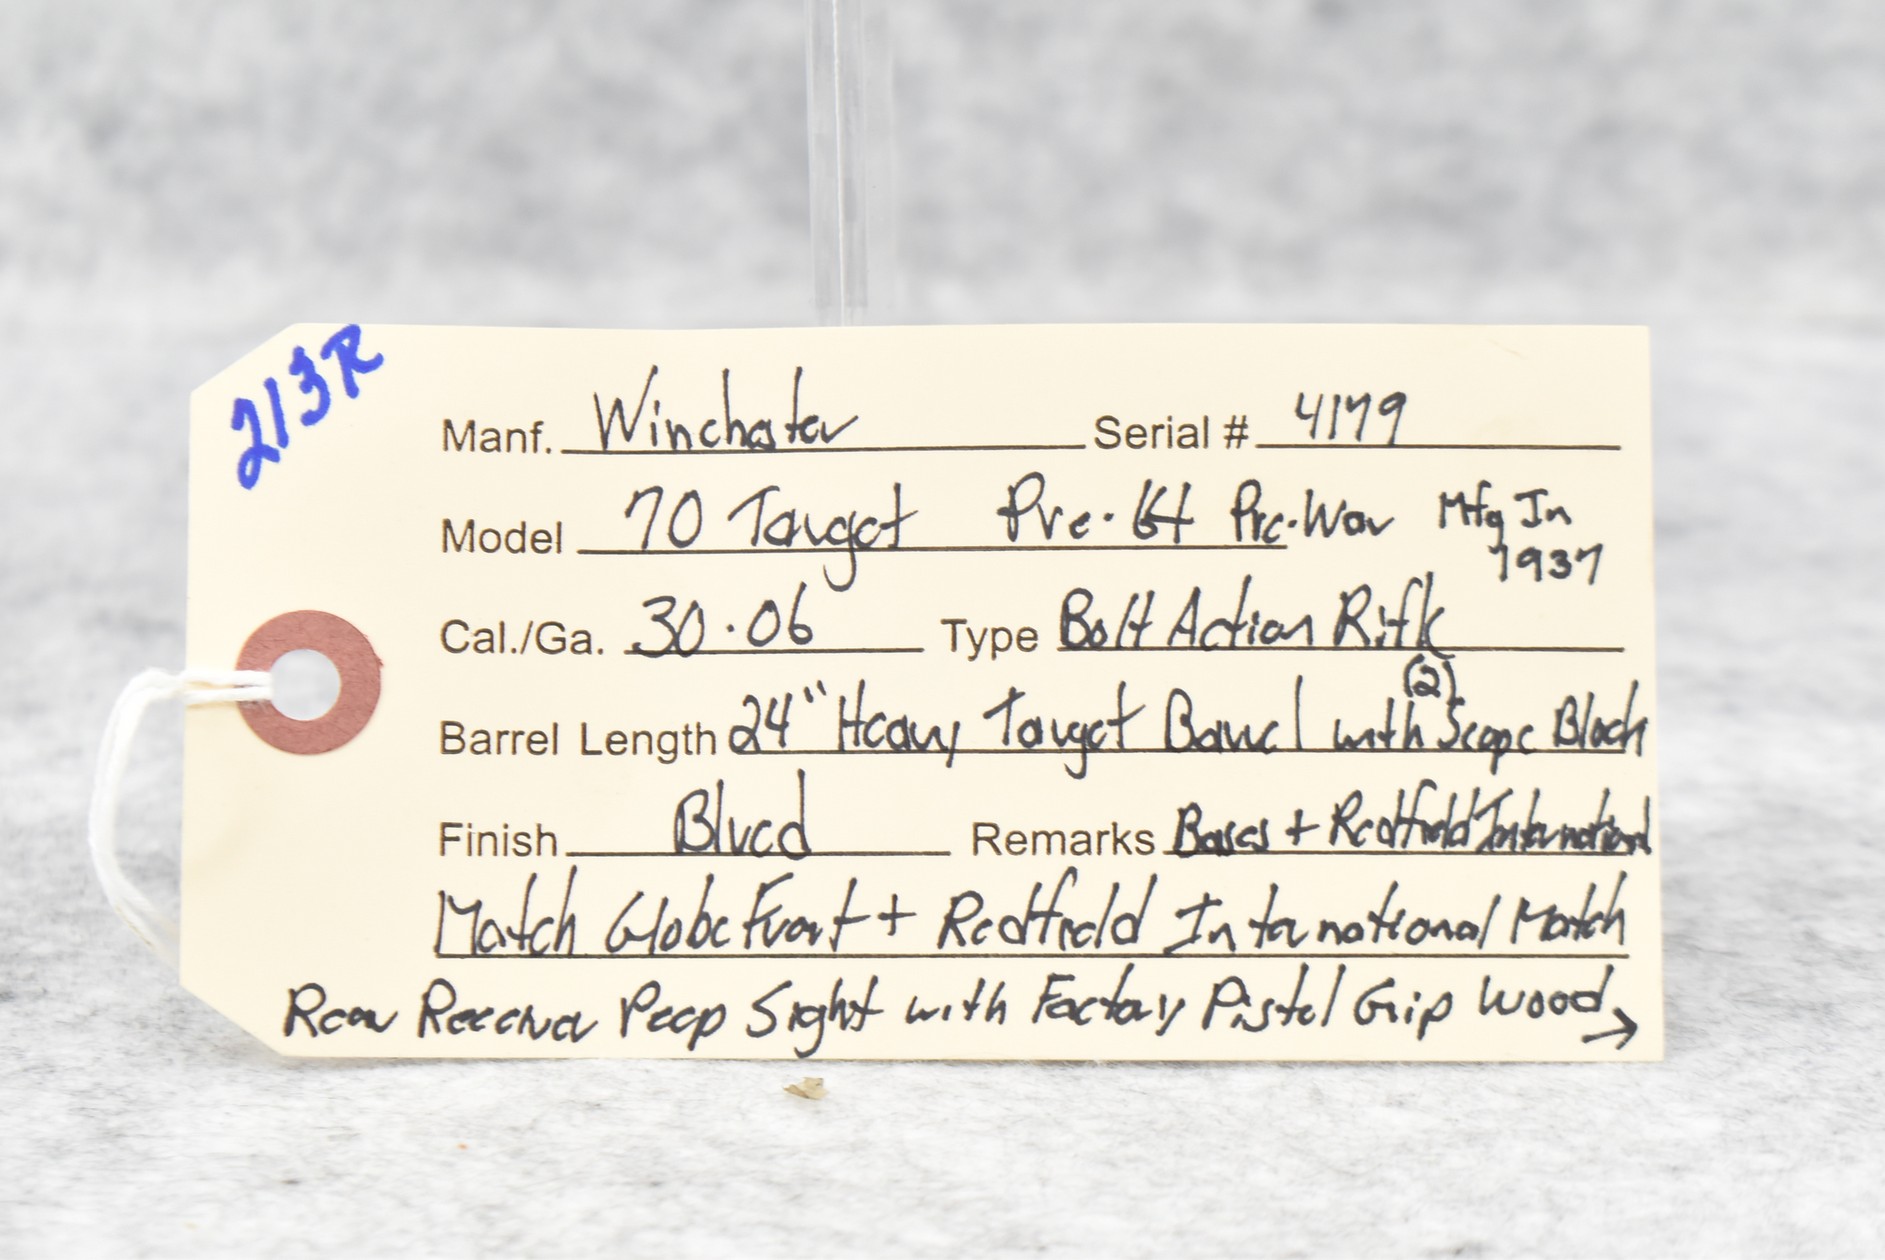 213R
Manf. Winchester Serial # 4179
Model 70 Target Pre-64 Pre-War Mfg In
1937
Cal./Ga. 30-06 Type Bolt Action Rifle
Barrel Length 24" Heavy Target Barrel with (2) Scope Block
Finish Blued Remarks Bases + Redfield International
Match Globe Front + Redfield International Match
Rear Receiver Peep Sight with Factory Pistol Grip Wood →